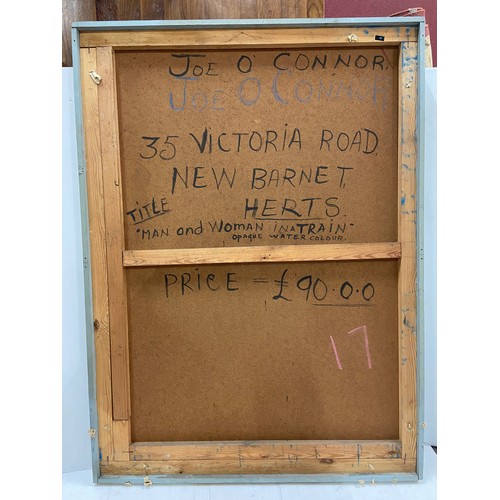 JOE O' CONNOR.
JOE O CONNOR,
35 VICTORIA ROAD.
NEW BARNET,
HERTS.
TITLE
"MAN and WOMAN IN A TRAIN"
OPAQUE WATER COLOUR.
PRICE = £90.0.0
17